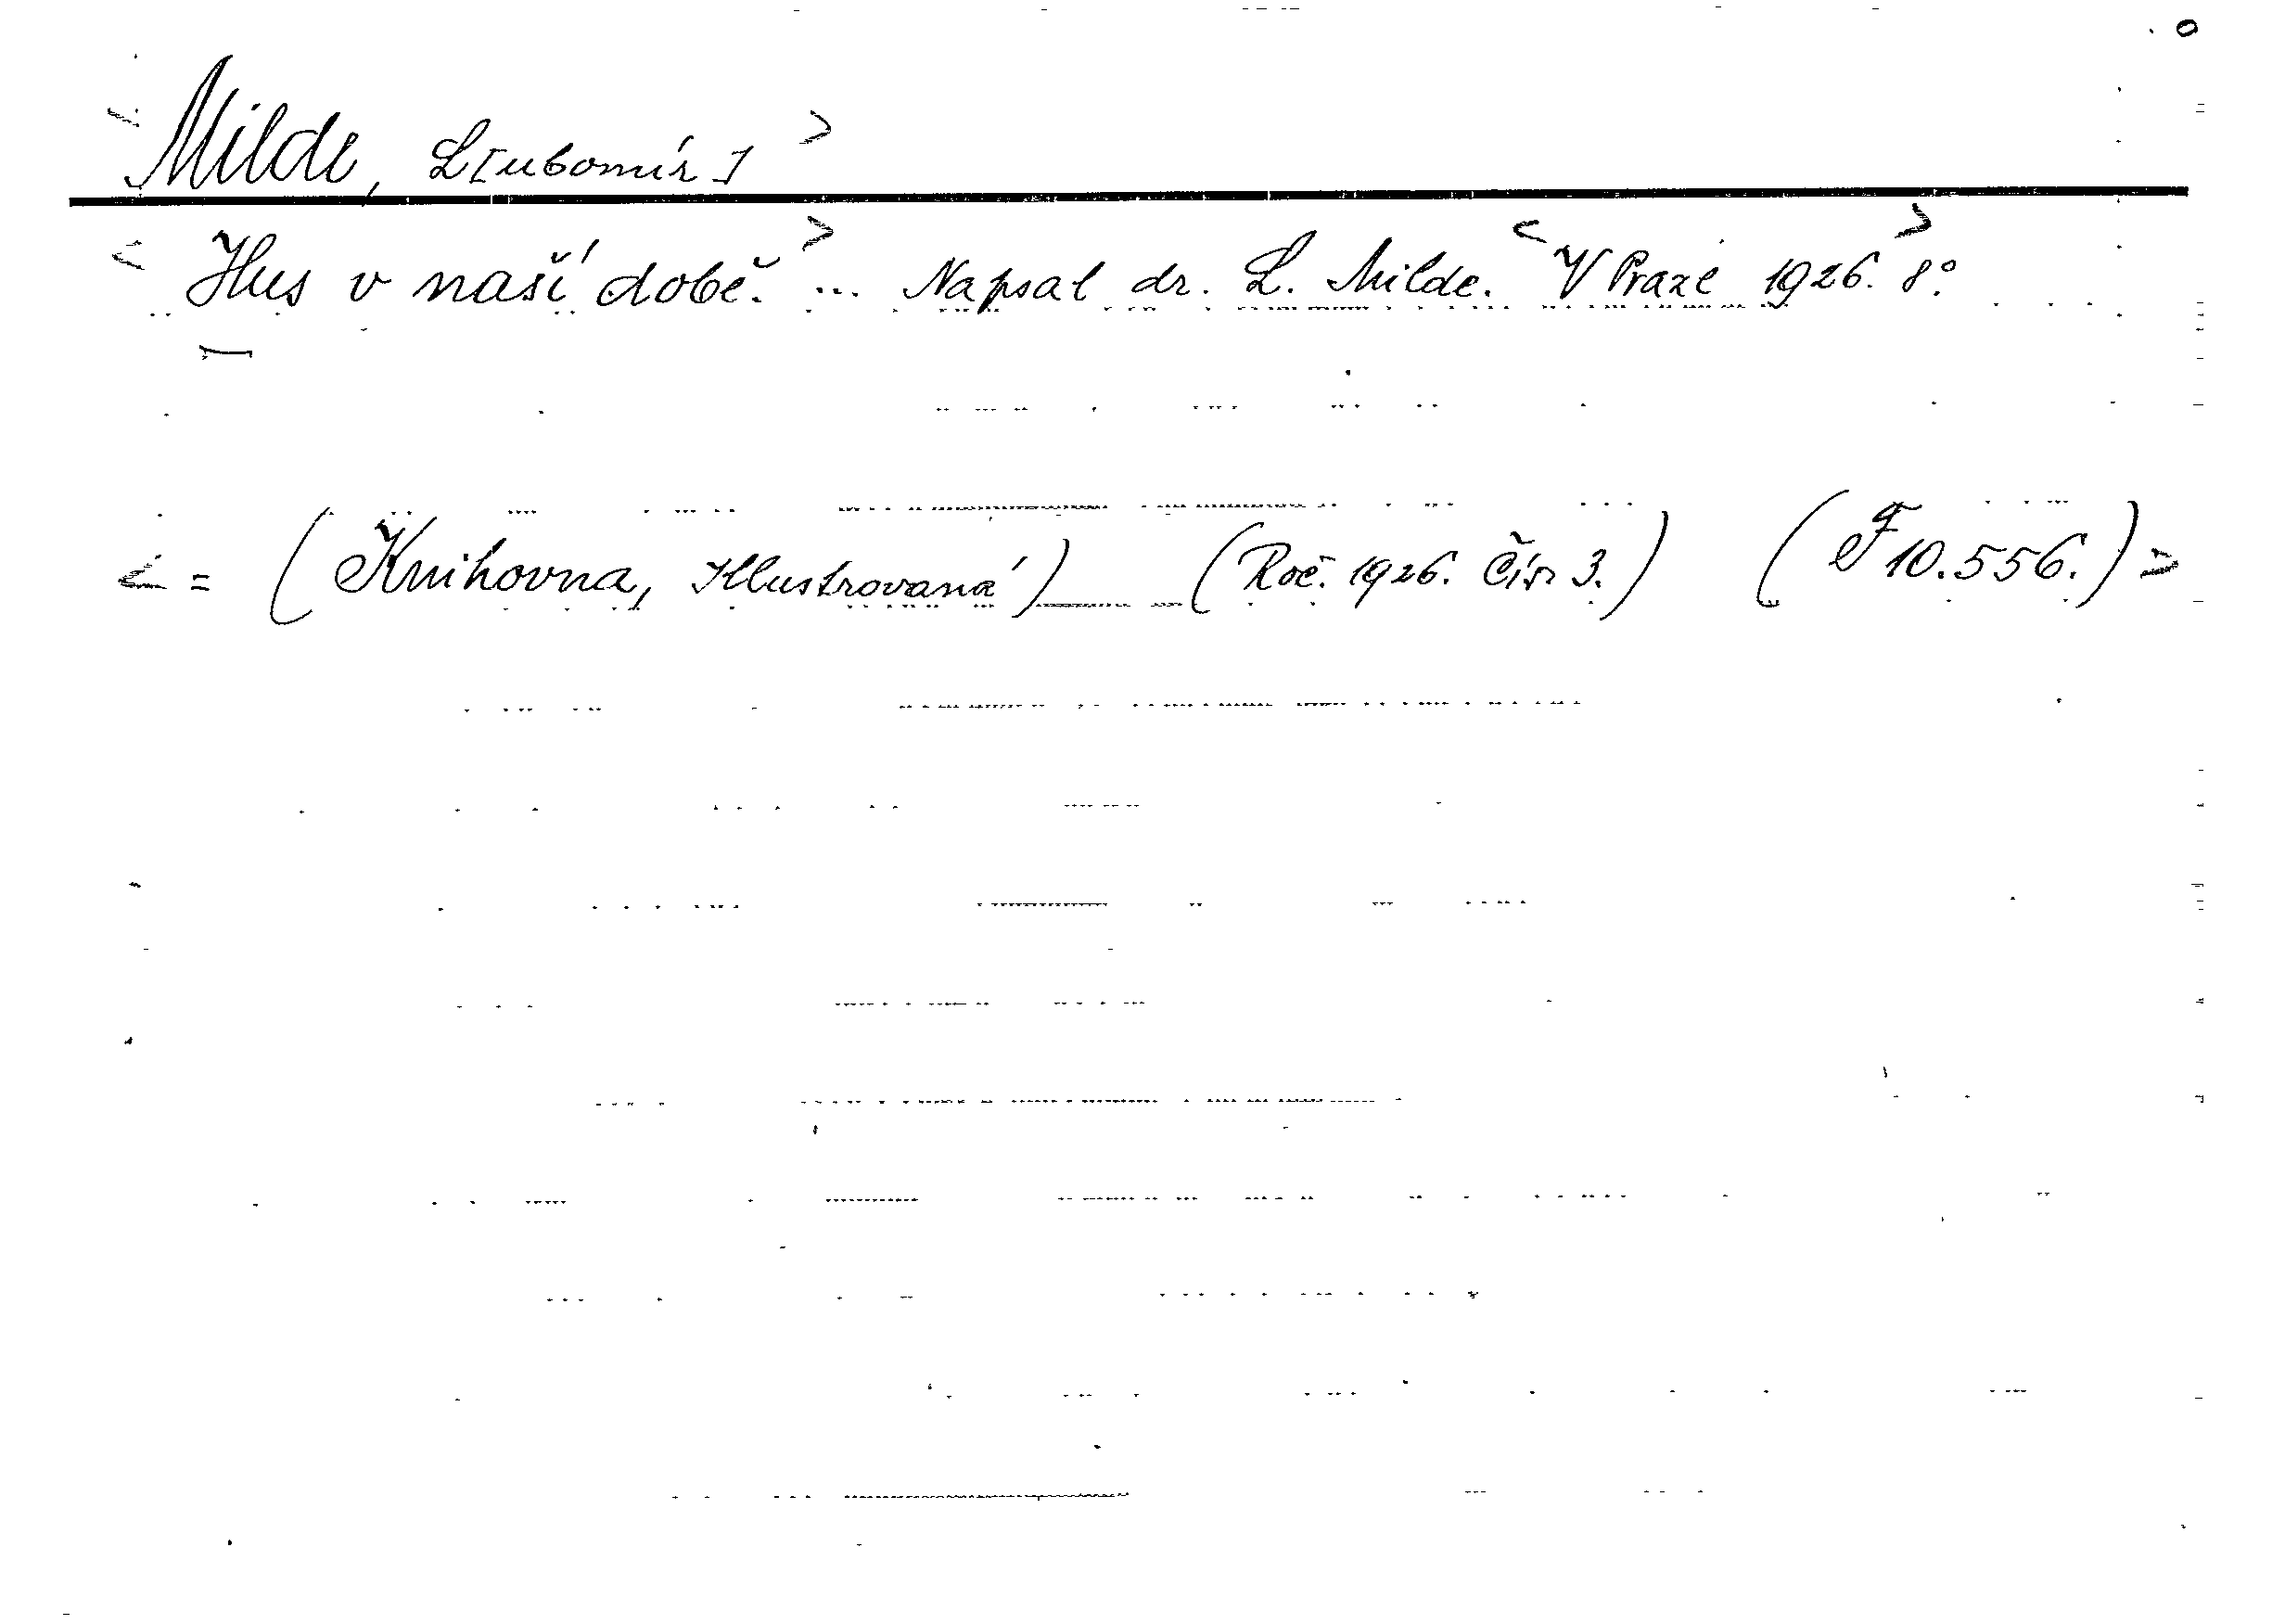 <Milde, L[ubomír]>
<Hus v naší době.> ... Napsal dr. L. Milde. <V Praze 1926.> 8°.
<= (Knihovna, Illustrovaná) (Roč. 1926. Čís. 3.) (F 10.556.)>